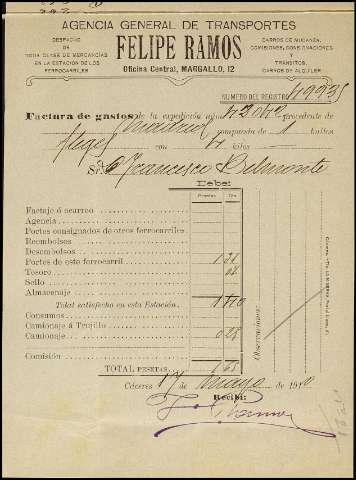 AGENCIA GENERAL DE TRANSPORTES
DESPACHO
DE
TODA CLASE DE MERCANCÍAS
EN LA ESTACIÓN DE LOS
FERROCARRILES
FELIPE RAMOS
Oficina Central, MARGALLO, 12
CARROS DE MUDANZA,
COMISIONES, CONSIGNACIONES
Y
TRÁNSITOS,
CARROS DE ALQUILER
NÚMERO DEL REGISTRO
Factura de gastos de la expedición núm. procedente de
Madrid compuesta de 1 bultos
con kilos
Sr. D. Francisco Belmonte
Debe:
Pesetas Cts.
Factaje ó acarreo
Agencia
Portes consignados de otros ferrocarriles
Reembolsos
Desembolsos
Portes de este ferrocarril
Tesoro
Sello
Almacenaje
Total satisfecho en esta Estación.
Consumos
Camionaje
Camionaje á Trujillo
Comisión
TOTAL PESETAS
Observaciones:
Cáceres 17 de mayo de 1910
Recibí: